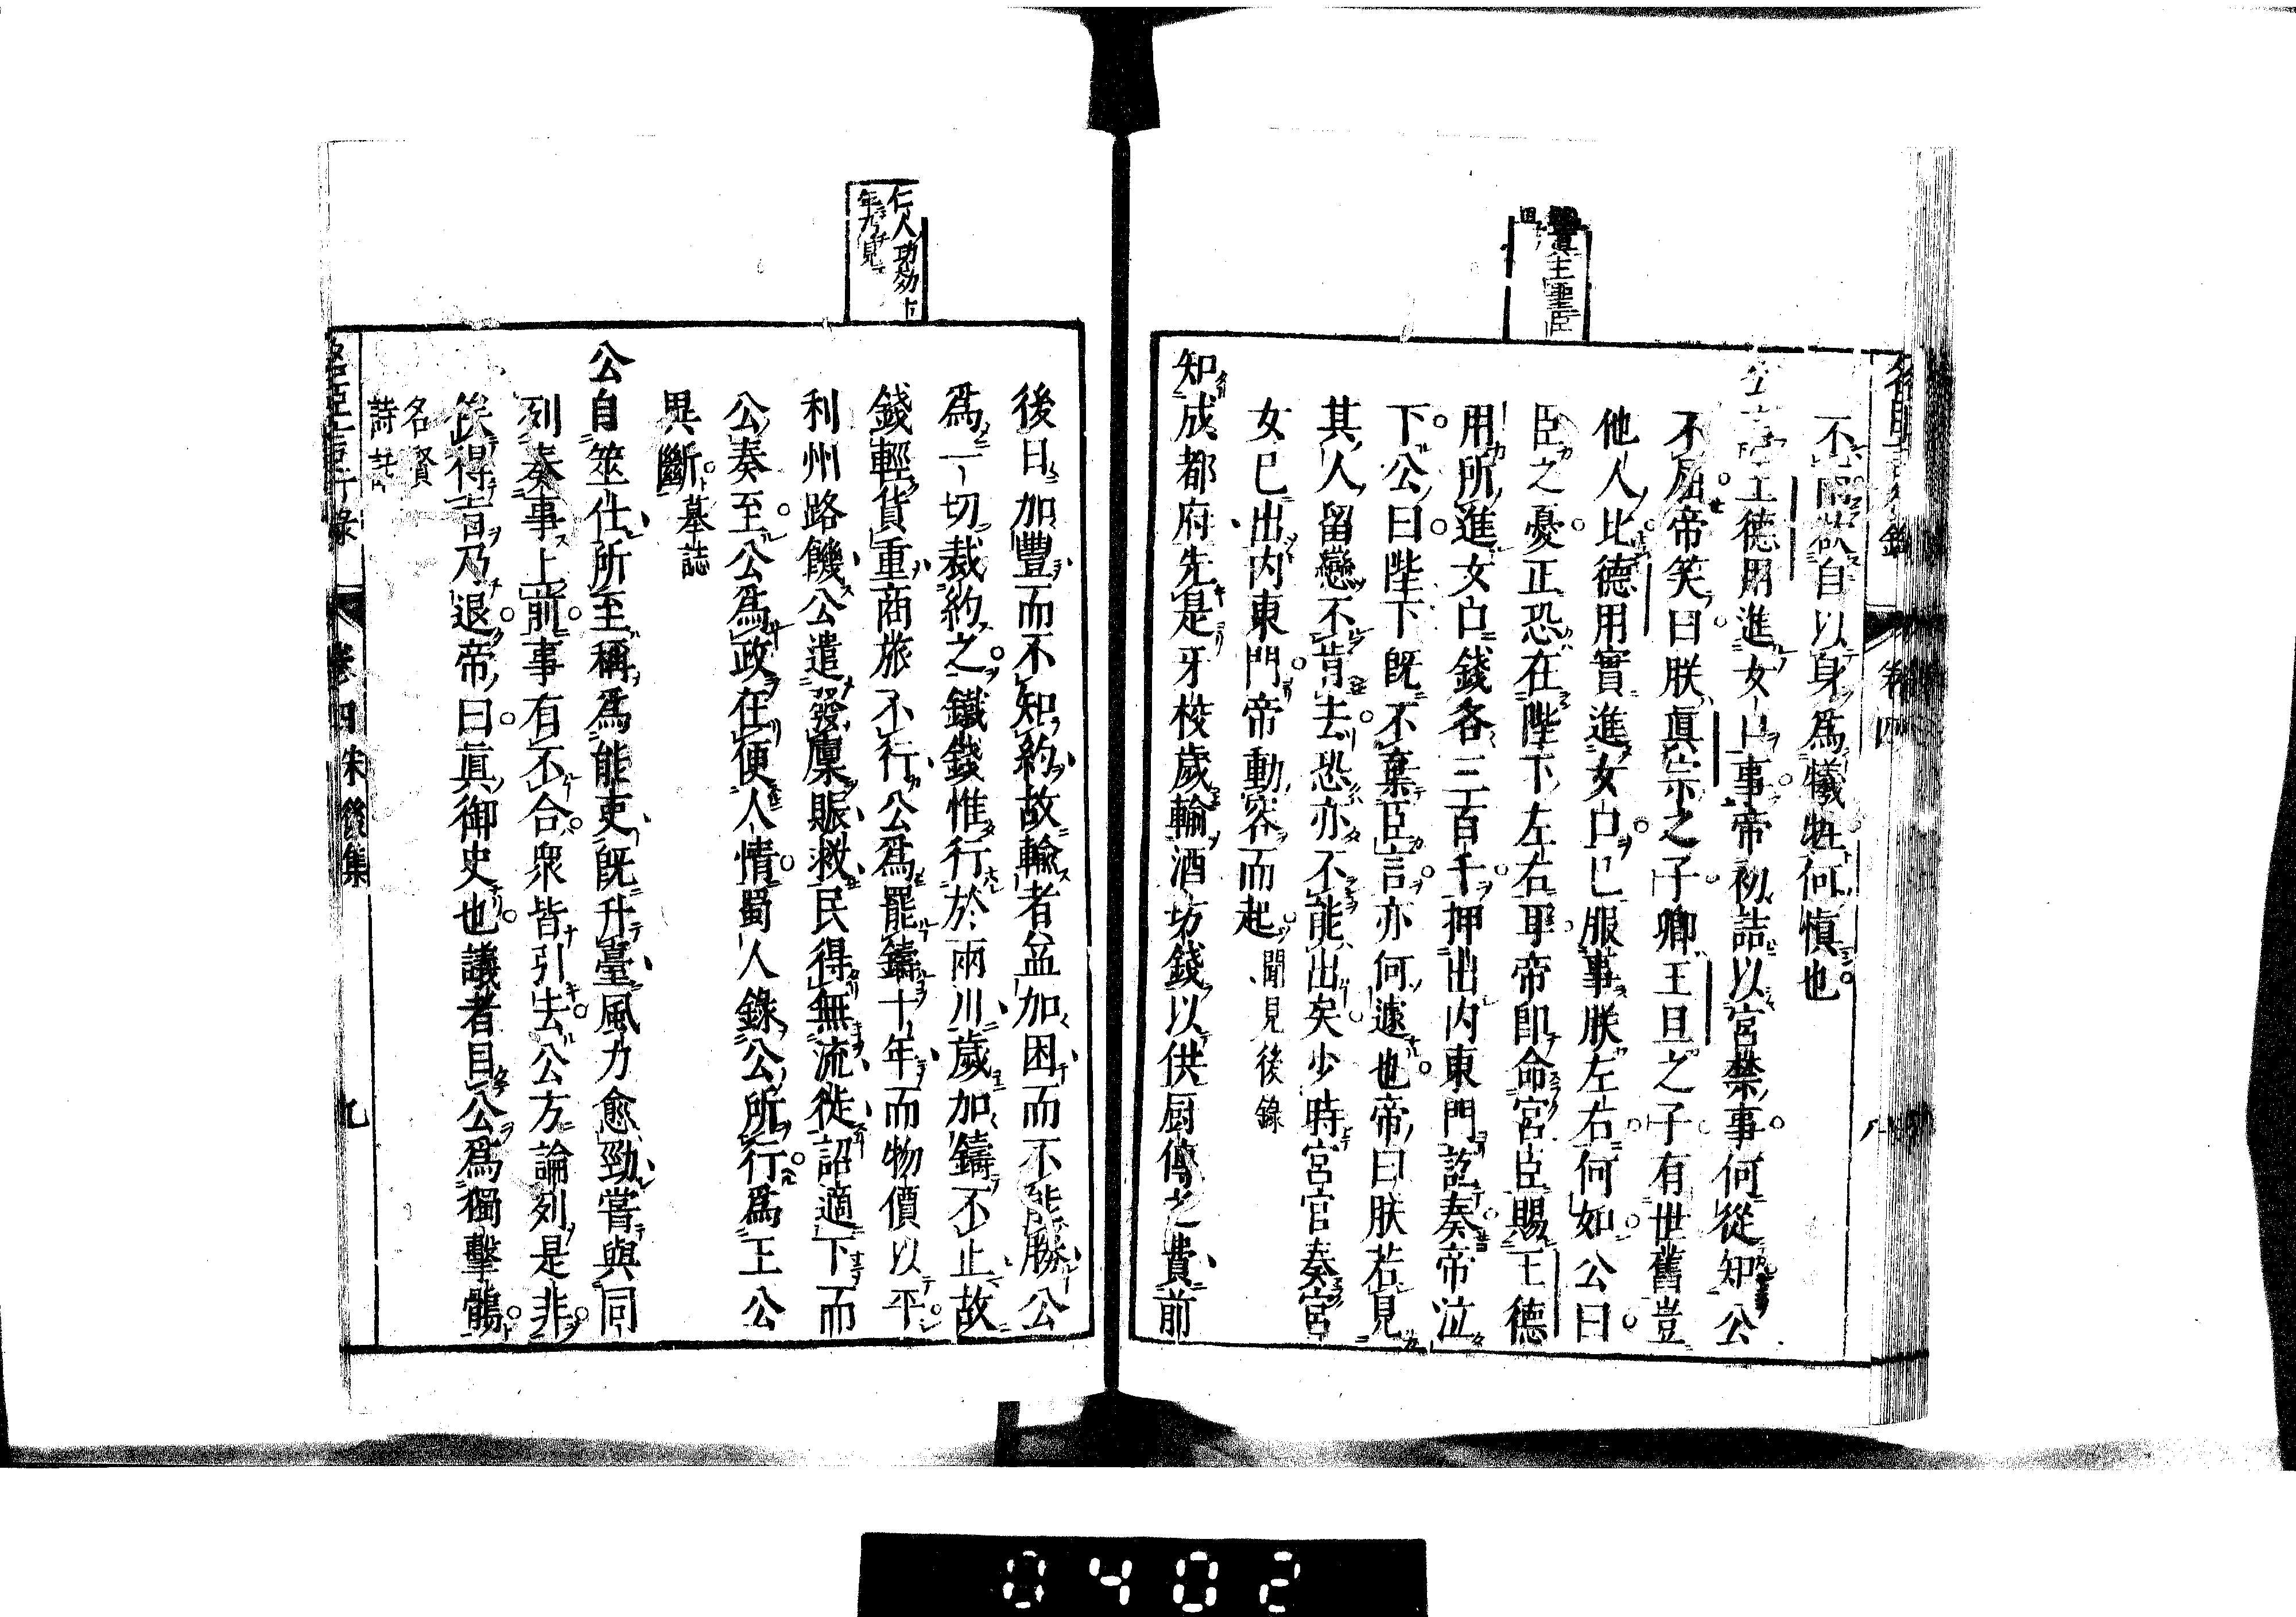 名臣言行錄 卷四 八
賢主重臣
不崇欲自以身爲犧牲何愼也
公言王德用進女口事帝初詰以宮禁事何從知公
不屈帝笑曰朕眞宗之子卿王旦之子有世舊豈
他人比德用實進女口已服事朕左右何如公曰
臣之憂正恐在陛下左右耳帝卽命宮臣賜王德
用所進女口錢各三百千押出內東門訖奏帝泣
下公曰陛下旣不棄臣言亦何遽也帝曰朕若見
其人留戀不肯去恐亦不能出矣少時宮官奏宮
女已出內東門帝動容而起聞見後錄
知成都府先是牙校歲輸酒坊錢以供厨傳之費前
仁人功効十
年乃見
後日加豐而不知約故輸者益加困而不能勝公
爲一切裁約之鐵錢惟行於兩川歲加鑄不止故
錢輕貨重商旅不行公爲罷鑄十年而物價以平
利州路饑公遣發廩賑救民得無流徙詔適下而
公奏至公爲政在便人情蜀人錄公所行爲王公
異斷墓誌
公自筮仕所至稱爲能吏旣升臺風力愈勁嘗與同
列奏事上前事有不合衆皆引去公方論列是非
俟得旨乃退帝曰眞御史也議者目公爲獨擊鶻
名賢
詩話
名臣言行錄 卷四 朱後集 九
0402